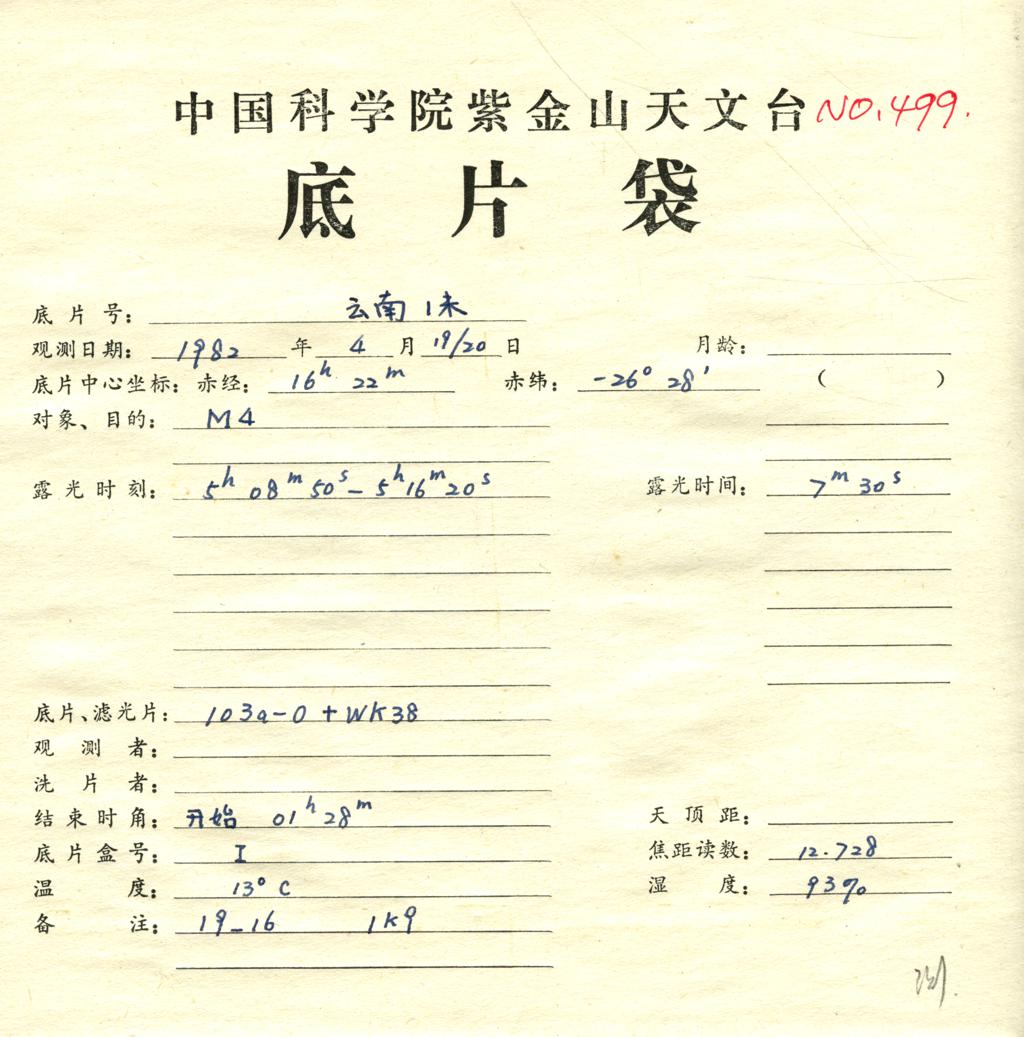 中国科学院紫金山天文台 NO.499.
底片袋
底片号： 云南1米
观测日期： 1982 年 4 月 19/20 日 月龄：
底片中心坐标：赤经： 16h 22m 赤纬： -26° 28′ （ ）
对象、目的： M4
露光时刻： 5h 08m 50s - 5h 16m 20s 露光时间： 7m 30s
底片、滤光片： 103a-O + WK38
观测者：
洗片者：
结束时角： 开始 01h 28m 天顶距：
底片盒号： I 焦距读数： 12.728
温度： 13°C 湿度： 93%
备注： 19-16 1K9